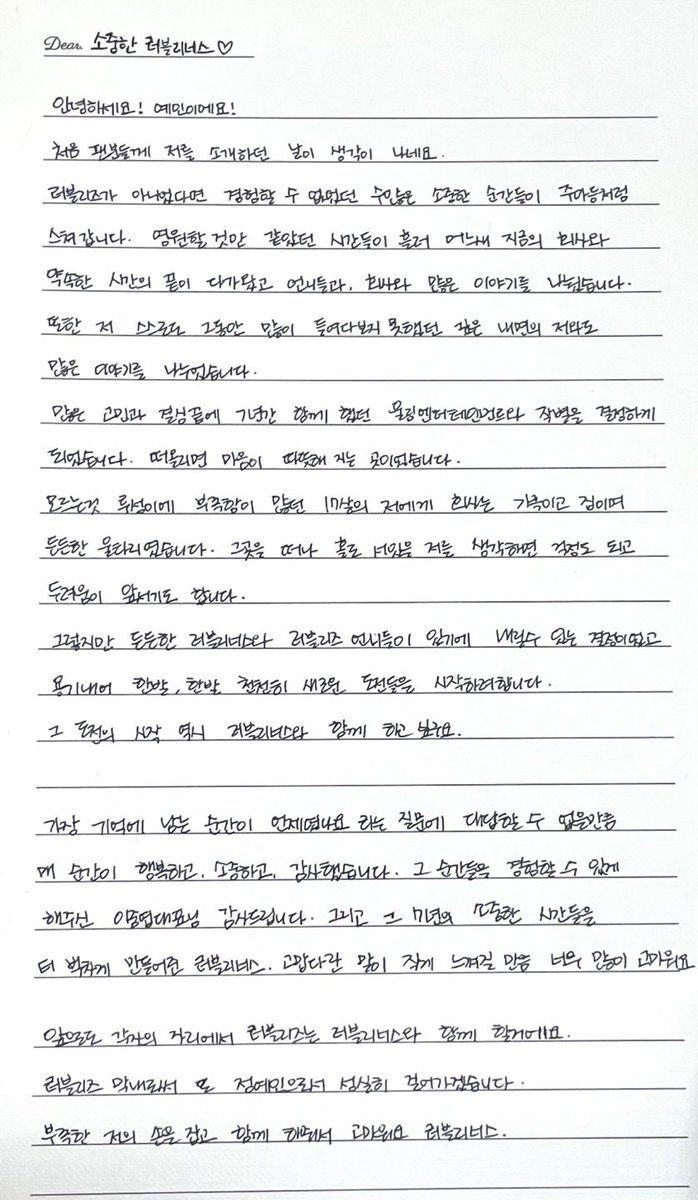 Dear. 소중한 러블리너스♡
안녕하세요! 예인이에요!
처음 팬분들께 저를 소개하던 날이 생각이 나네요.
러블리즈가 아니었다면 경험할 수 없었던 수많은 소중한 순간들이 주마등처럼
스쳐 갑니다. 영원할 것만 같았던 시간들이 흘러 어느새 지금의 회사와
약속한 시간의 끝이 다가왔고 언니들과, 회사와 많은 이야기를 나눴습니다.
또한 저 스스로도 그동안 많이 들여다보지 못했던 깊은 내면의 저와도
많은 이야기를 나누었습니다.
많은 고민과 결심끝에 7년간 함께 했던 울림엔터테인먼트와 작별을 결정하게
되었습니다. 떠올리면 마음이 따뜻해 지는 곳이었습니다.
모르는것 투성이에 부족함이 많던 17살의 저에게 회사는 가족이고 집이며
든든한 울타리였습니다. 그곳을 떠나 홀로 서있을 저를 생각하면 걱정도 되고
두려움이 앞서기도 합니다.
그렇지만 든든한 러블리너스와 러블리즈 언니들이 있기에 내릴수 있는 결정이었고
용기내어 한발, 한발 천천히 새로운 도전들을 시작하려합니다.
그 도전의 시작 역시 러블리너스와 함께 하고 싶어요.
가장 기억에 남는 순간이 언제였나요 라는 질문에 대답할 수 없을만큼
매 순간이 행복하고, 소중하고, 감사했습니다. 그 순간들을 경험할 수 있게
해주신 이중엽대표님 감사드립니다. 그리고 그 7년의 소중한 시간들을
더 벅차게 만들어준 러블리너스. 고맙다란 말이 작게 느껴질 만큼 너무 많이 고마워요
앞으로도 각자의 자리에서 러블리즈는 러블리너스와 함께 할거에요.
러블리즈 막내로써 또 정예인으로서 성실히 걸어가겠습니다.
부족한 저의 손을 잡고 함께 해줘서 고마워요 러블리너스.